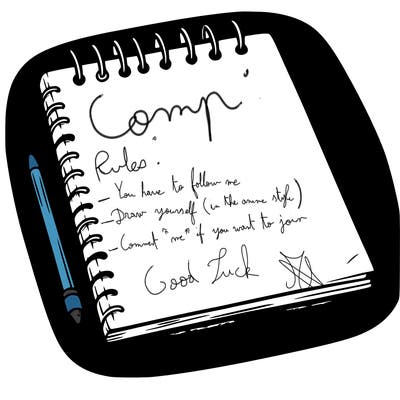 Comp'
Rules.
- You have to follow me
- Draw yourself (in the anime style)
- Comment "me" if you want to join
Good Luck